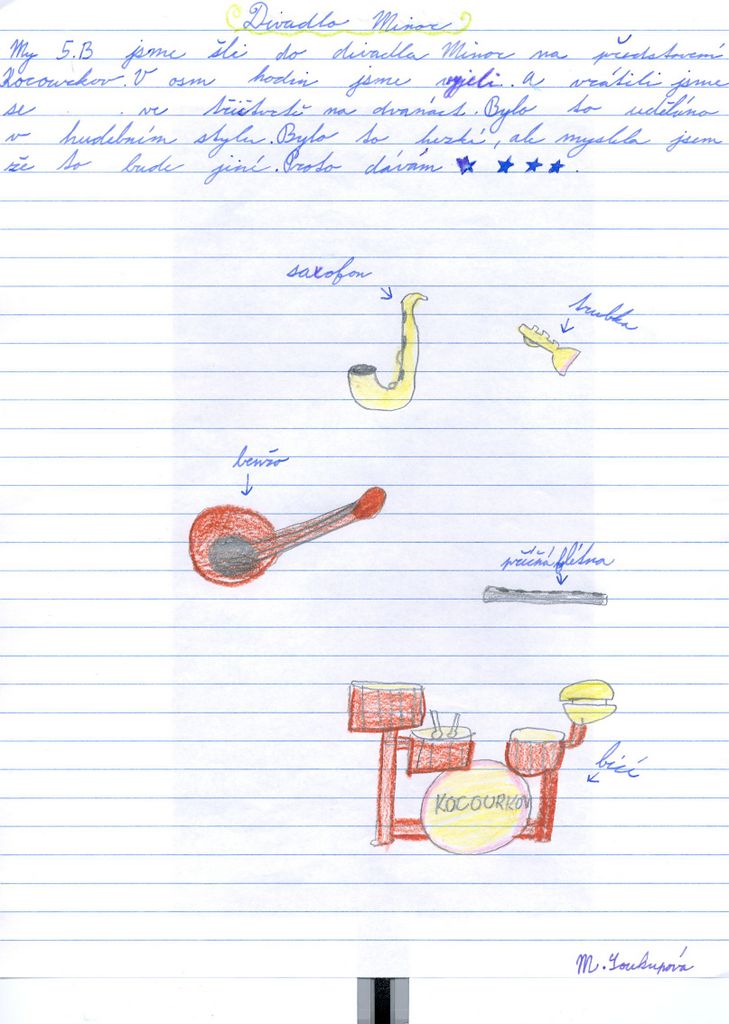 Divadlo Minor
My 5.B jsme šli do divadla Minor na představení
Kocourkov. V osm hodin jsme vyjeli. A vrátili jsme
se . . ve třičtvrtě na dvanáct. Bylo to uděláno
v hudebním stylu. Bylo to hezké, ale myslela jsem
že to bude jiné. Proto dávám ★ ★ ★ ★.
saxofon
trubka
benžo
příčná flétna
KOCOURKOV
bicí
M. Soukupová